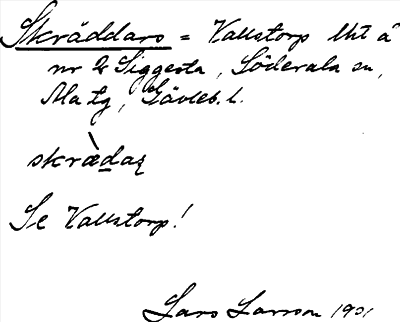 Skräddars = Vallstorp lht å
nr 2 Siggesta, Söderala sn,
Ma tg, Gävleb. l.
skrædaʂ
Se Vallstorp!
Lars Larsson 1901